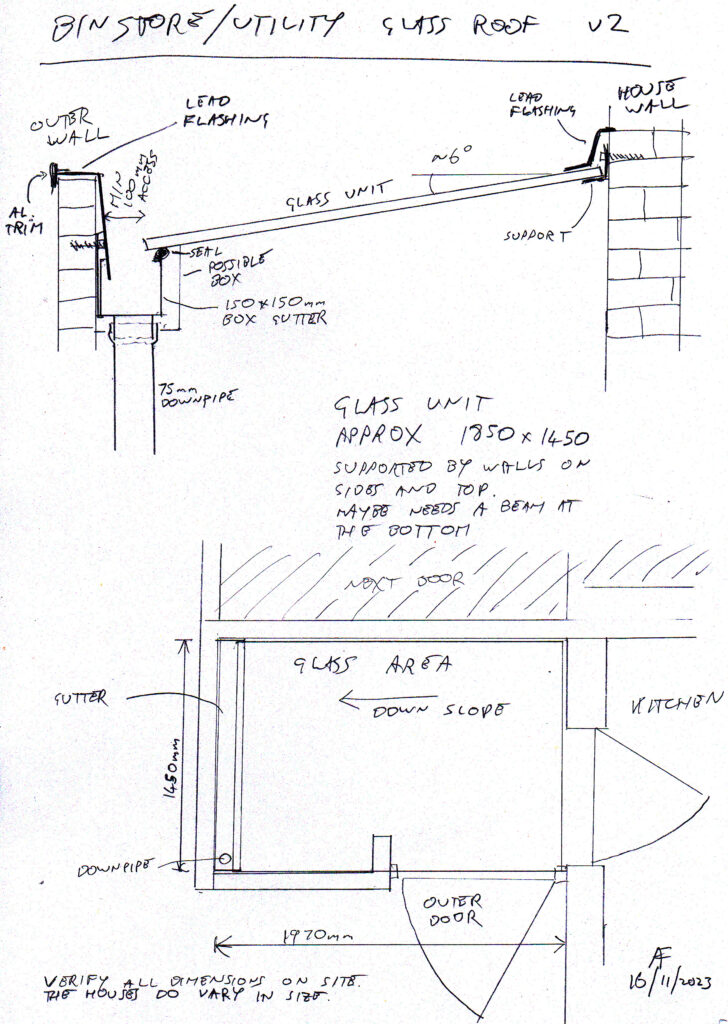 BINSTORE/UTILITY GLASS ROOF V2
LEAD
FLASHING
OUTER
WALL
MIN
100mm
ACCESS
AL.
TRIM
LEAD
FLASHING
HOUSE
WALL
~6°
GLASS UNIT
SUPPORT
SEAL
POSSIBLE
BOX
150x150mm
BOX GUTTER
75mm
DOWNPIPE
GLASS UNIT
APPROX 1850 x 1450
SUPPORTED BY WALLS ON
SIDES AND TOP.
MAYBE NEEDS A BEAM AT
THE BOTTOM
NEXT DOOR
GLASS AREA
DOWN SLOPE
GUTTER
KITCHEN
1450mm
DOWNPIPE
OUTER
DOOR
1970mm
VERIFY ALL DIMENSIONS ON SITE.
THE HOUSES DO VARY IN SIZE.
AF
16/11/2023